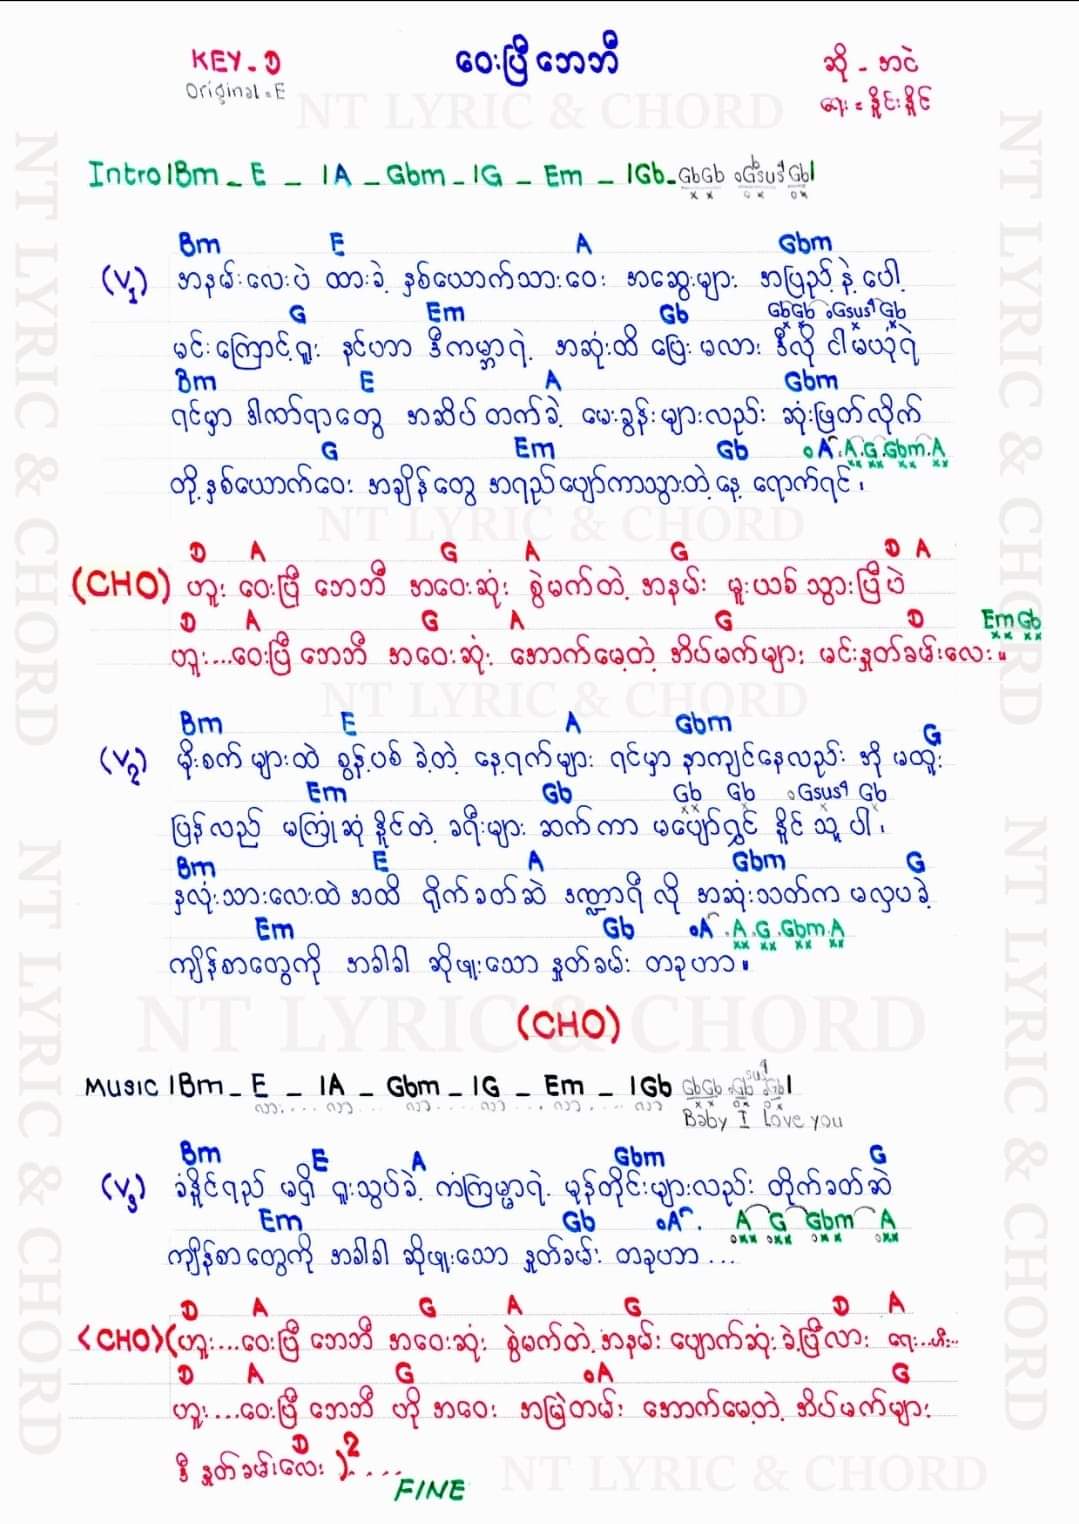 KEY - D
Original = E
ဝေးပြီဘေဘီ
ဆို - အငဲ
ရေး = နိုင်းနိုင်
NT LYRIC & CHORD
Intro |Bm - E - |A - Gbm - |G - Em - |Gb - GbGb Gbsus4 Gb|
Bm E A Gbm
(V1) အနမ်းလေးပဲ ထားခဲ့ နှစ်ယောက်သားဝေး အဆွေးများ အပြည့်နဲ့ပေါ့
G Em Gb GbGb Gsus4 Gb
မင်းကြောင့်ရူး နင်ဟာ ဒီကမ္ဘာရဲ့ အဆုံးထိ ပြေးမလား ဒီလို ငါမယုံရဲ
Bm E A Gbm
ရင်မှာ ဒါဏ်ရာတွေ အဆိပ်တက်ခဲ့ မေးခွန်းများလည်း ဆုံးဖြတ်လိုက်
G Em Gb A A G Gbm A
တို့နှစ်ယောက်ဝေး အချိန်တွေ အရည်ပျော်ကာသွားတဲ့နေ့ ရောက်ရင်၊
NT LYRIC & CHORD
D A G A G D A
(CHO) ဟူး ဝေးပြီ ဘေဘီ အဝေးဆုံး စွဲမက်တဲ့ အနမ်း မူးယစ်သွားပြီပဲ
D A G A G D Em Gb
ဟူး...ဝေးပြီ ဘေဘီ အဝေးဆုံး အောက်မေ့တဲ့ အိပ်မက်များ မင်းနှုတ်ခမ်းလေး။
NT LYRIC & CHORD
Bm E A Gbm G
(V2) မိုးစက်များထဲ စွန့်ပစ်ခဲ့တဲ့ နေ့ရက်များ ရင်မှာ နာကျင်နေလည်း အို မထူး
Em Gb Gb Gb Gsus4 Gb
ပြန်လည် မကြုံဆုံနိုင်တဲ့ ခရီးများ ဆက်ကာ မပျော်ရွှင်နိုင်သူပါ၊
Bm E A Gbm G
နှလုံးသားလေးထဲအထိ ရိုက်ခတ်ဆဲ ဒဏ္ဍာရီလို အဆုံးသတ်က မလှပခဲ့
Em Gb A A G Gbm A
ကျိန်စာတွေကို အခါခါ ဆိုဖူးသော နှုတ်ခမ်း တခုဟာ။
NT LYRIC & CHORD
(CHO)
MUSIC |Bm - E - |A - Gbm - |G - Em - |Gb GbGb Gbsus4 Gb|
လား.... လား... လား... လား... လား... လား
Baby I Love you
Bm E A Gbm G
(V3) ခံနိုင်ရည် မရှိ ရူးသွပ်ခဲ့ ကံကြမ္မာရဲ့ မုန်တိုင်းများလည်း တိုက်ခတ်ဆဲ
Em Gb A A G Gbm A
ကျိန်စာတွေကို အခါခါ ဆိုဖူးသော နှုတ်ခမ်း တခုဟာ...
D A G A G D A
<CHO> (ဟူး...ဝေးပြီ ဘေဘီ အဝေးဆုံး စွဲမက်တဲ့အနမ်း ပျောက်ဆုံးခဲ့ပြီလား ရေး..ဟီး..
D A G A G
ဟူး...ဝေးပြီ ဘေဘီ ဟို အဝေး အမြဲတမ်း အောက်မေ့တဲ့ အိပ်မက်များ
D
ဒီ နှုတ်ခမ်းလေး )2....
NT LYRIC & CHORD
FINE